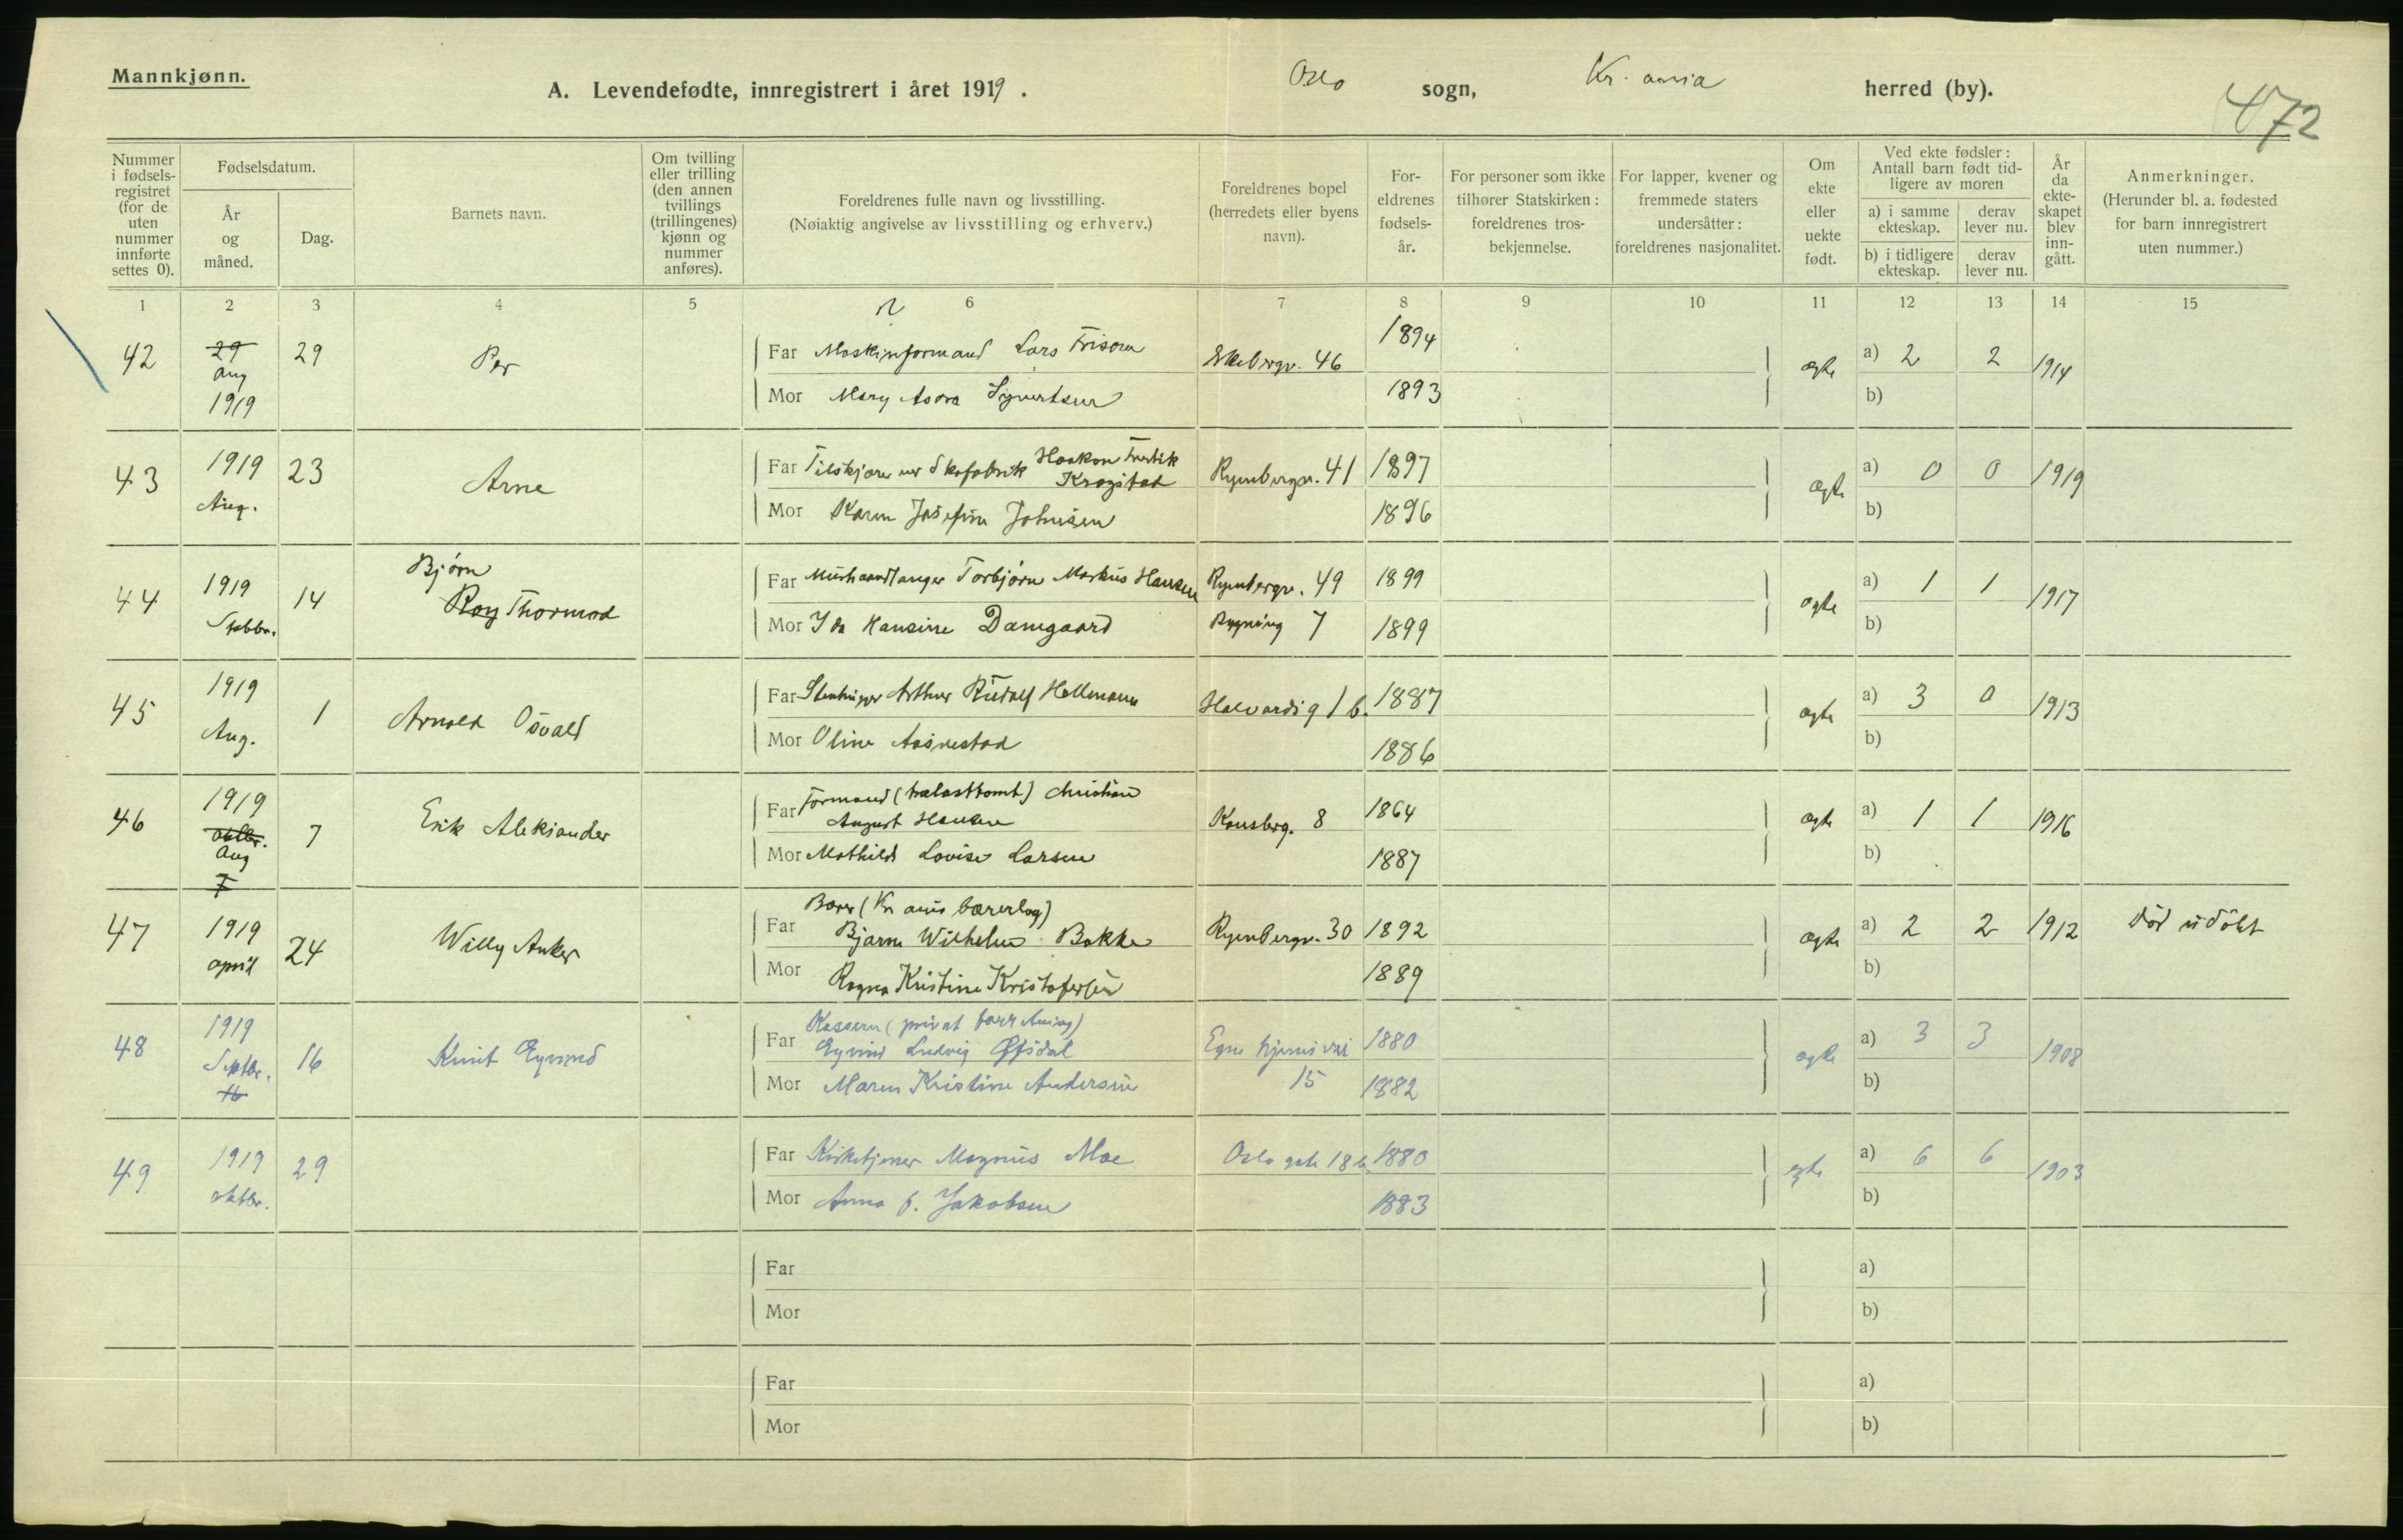 Mannkjønn.
A. Levendefødte, innregistrert i året 1919. Oslo sogn, Kr. ania herred (by).
472
Nummer i fødsels-registret (for de uten nummer innførte settes 0).
Fødselsdatum.
År og måned.
Dag.
Barnets navn.
Om tvilling eller trilling (den annen tvillings (trillingenes) kjønn og nummer anføres).
Foreldrenes fulle navn og livsstilling.
(Nøiaktig angivelse av livsstilling og erhverv.)
Foreldrenes bopel (herredets eller byens navn).
For-eldrenes fødsels-år.
For personer som ikke tilhører Statskirken: foreldrenes tros-bekjennelse.
For lapper, kvener og fremmede staters undersåtter: foreldrenes nasjonalitet.
Om ekte eller uekte født.
Ved ekte fødsler: Antall barn født tid-ligere av moren
a) i samme ekteskap.
derav lever nu.
b) i tidligere ekteskap.
derav lever nu.
År da ekte-skapet blev inn-gått.
Anmerkninger.
(Herunder bl. a. fødested for barn innregistrert uten nummer.)
1 2 3 4 5 6 7 8 9 10 11 12 13 14 15
42 29 Aug 1919 29 Per
Far Maskinformand Lars Ekebergv. 46 1894 ægte a) 2 2 1914
Mor Mary Syvertsen 1893 b)
43 1919 Aug. 23 Arne
Far Tilskjærer ved Skofabrik Haakon Fredrik Krogstad Ryenbergv. 41 1897 ægte a) 0 0 1919
Mor Karen Josefine Johnsen 1896 b)
44 1919 Septbr. 14 Bjørn
Roy Thormod
Far Murhaandlanger Torbjørn Markus Hansen Ryenbergv. 49 1899 ægte a) 1 1 1917
Mor Ida Hansine Damgaard Bygning 7 1899 b)
45 1919 Aug. 1 Arnold Osvald
Far Stenhugger Arthur Rudolf Hellmann Halvards g 1 b. 1887 ægte a) 3 0 1913
Mor Oline 1886 b)
46 1919 oktbr. Aug 7 7 Erik Aleksander
Far Formand (trælasttomt) Christian August Hansen Konsberg. 8 1864 ægte a) 1 1 1916
Mor Mathilde Lovise Larsen 1887 b)
47 1919 april 24 Willy Anker
Far Bærer (Kr anias bærerlag)
Bjarne Wilhelm Bakke Ryenbergv. 30 1892 ægte a) 2 2 1912 død udøbt
Mor Ragna Kristine Kristofersen 1889 b)
48 1919 Septbr. 16 16 Knut Eyvind
Far Kasserer (privat forretning)
Eyvind Ludvig Egne hjems vei 1880 ægte a) 3 3 1908
Mor Maren Kristine Andersen 15 1882 b)
49 1919 oktbr. 29
Far Kirketjener Magnus Moe Oslo gate 18 b. 1880 egte a) 6 6 1903
Mor Anna f. Jakobsen 1883 b)
Far a)
Mor b)
Far a)
Mor b)